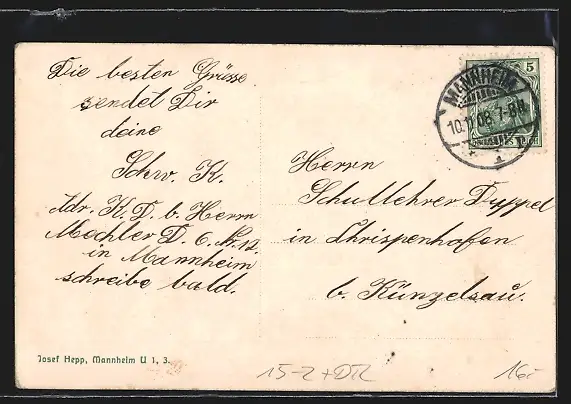 Die besten Grüsse
sendet Dir
deine
Schw. K.
Adr. K. D. b. Herrn
Mechler D. 6. Nr. 12.
in Mannheim
schreibe bald.
5
MANNHEIM
10.11.08. 7-8N.
Herrn
Schullehrer Duppel
in Chrispenhofen
b. Künzelsau.
Josef Hepp, Mannheim U 1, 3.
15-2 + DR
16.-